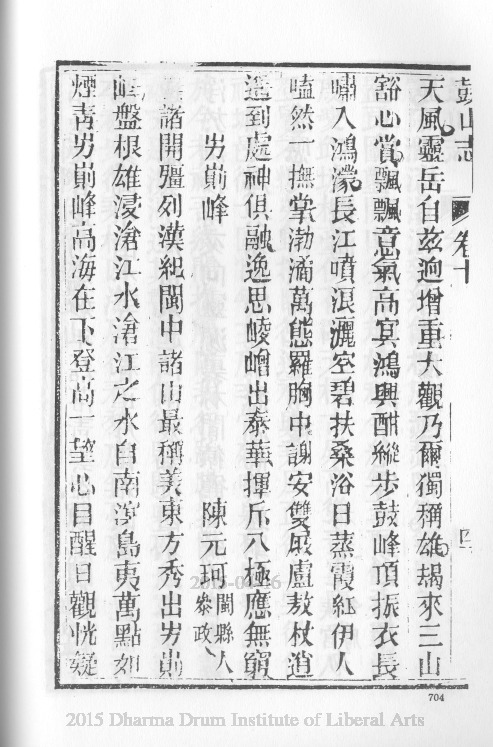 鼓山志 卷十 四
天風靈岳自茲迥增重大觀乃爾獨稱雄朅來三山
豁心賞飄飄意氣高冥鴻興酣縱步鼓峰頂振衣長
嘯入鴻濛長江噴浪灑空碧扶桑浴日蒸霞紅伊人
嗑然一撫掌渤澥萬態羅胸中謝安雙屐盧敖杖逍
遙到處神俱融逸思崚嶒出泰華揮斥八極應無窮
屴崱峰 陳元珂 閩縣人 叅政
諸開疆列漢紀閩中諸山最稱美東方秀出屴崱
峰盤根雄浸滄江水滄江之水自南濱島夷萬點如
煙青屴崱峰高海在下登高一望心目醒日觀恍疑
704
2015 Dharma Drum Institute of Liberal Arts